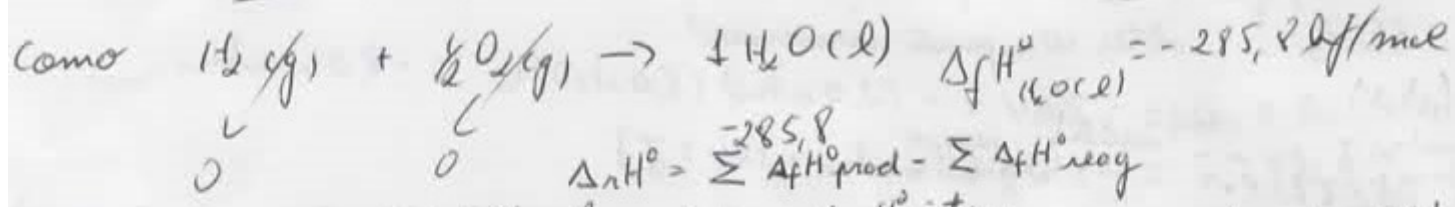 Como H₂(g) + ½O₂(g) → 1 H₂O(l) ΔfH°H₂O(l) = -285,8 kJ/mol
0 0 -285,8
ΔrH° = Σ ΔfH°prod - Σ ΔfH°reag